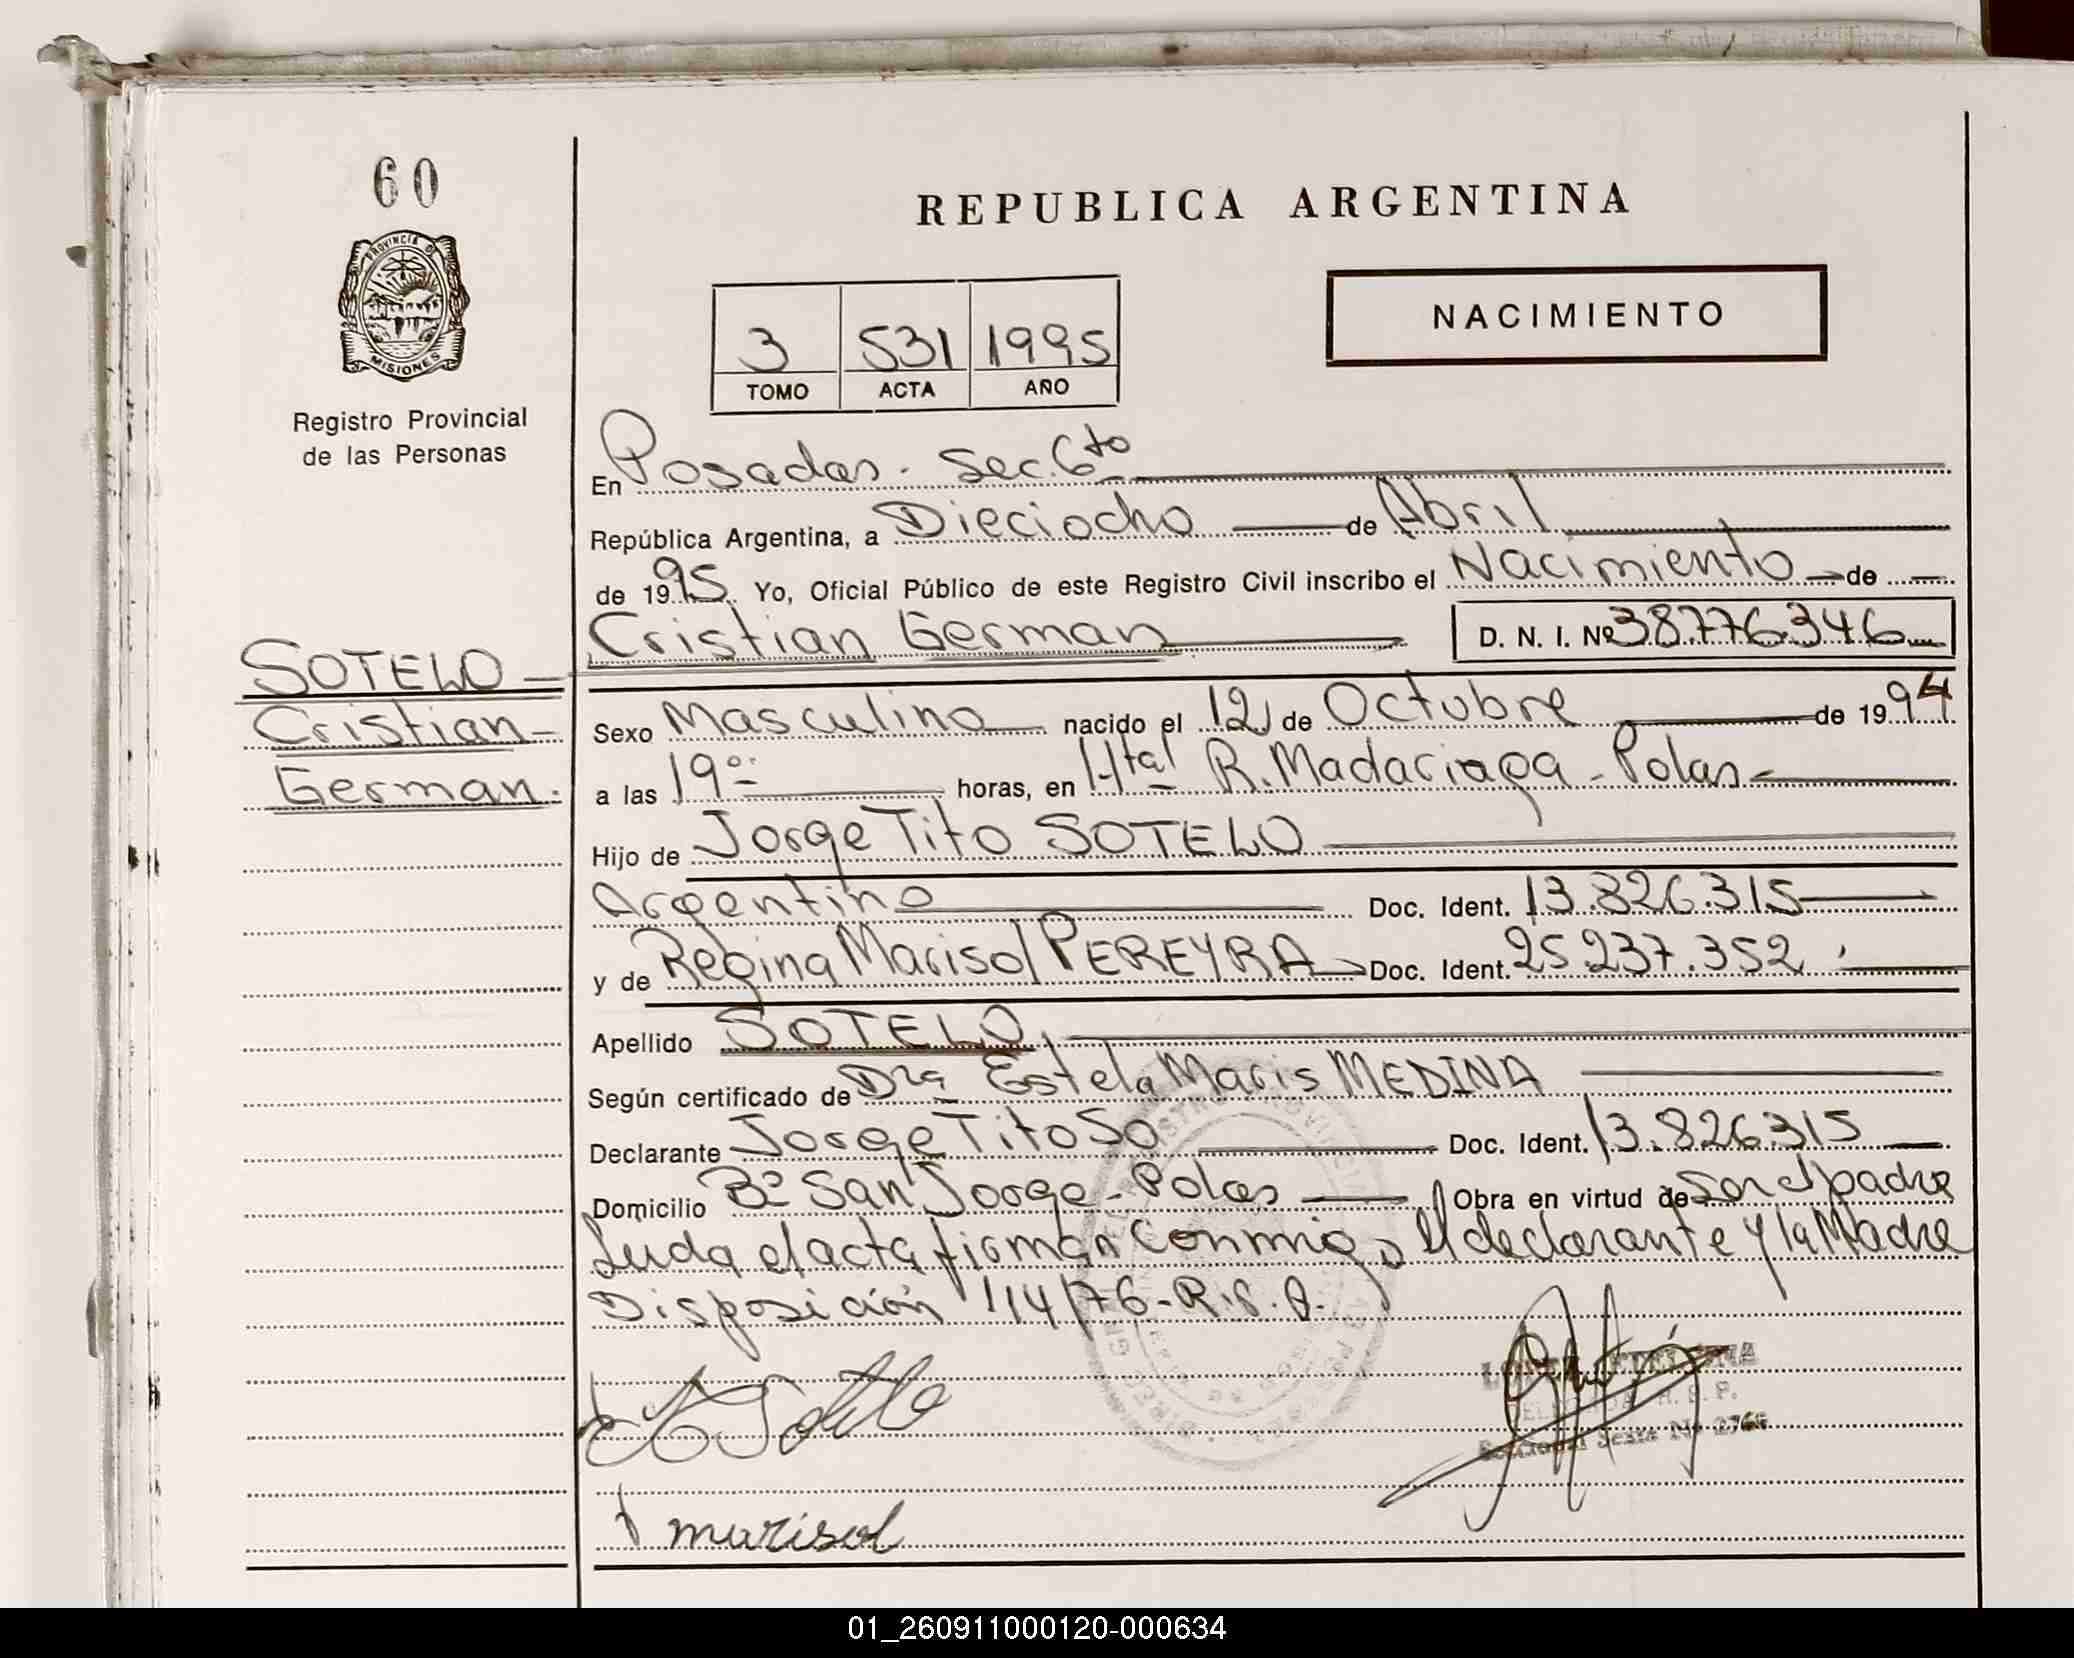 60
PROVINCIA DE
MISIONES
Registro Provincial
de las Personas
REPUBLICA ARGENTINA
NACIMIENTO
3 531 1995
TOMO ACTA AÑO
En Posadas. Sec. 6to
República Argentina, a Dieciocho de Abril
de 1995 Yo, Oficial Público de este Registro Civil inscribo el Nacimiento de
Cristian German D. N. I. Nº 38776346
SOTELO
Cristian
German.
Sexo Masculino nacido el 12 de Octubre de 1994
a las 19º horas, en Htal R. Madariaga - Pdas
Hijo de Jorge Tito SOTELO
Argentino Doc. Ident. 13.826.315
y de Regina Marisol PEREYRA Doc. Ident. 25.237.352
Apellido SOTELO
Según certificado de Dra Estela Maris MEDINA
Declarante Jorge Tito So Doc. Ident. 13.826.315
Domicilio Bº San Jorge - Pdas Obra en virtud de Ser el padre
Leída el acta firman conmigo el declarante y la Madre
Disposición 114/76-R.
Sotelo
marisol
01_260911000120-000634